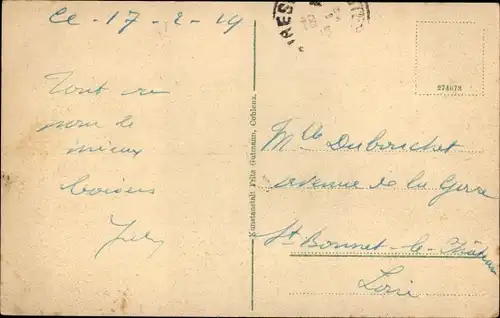 Ce - 17-2-19
Tout va
pour le
mieux
baisers
TRES
18
Kunstanstalt Fritz Gutmann, Coblenz.
274673
Mlle Dubouchet
avenue de la Gare
St Bonnet-le-Château
Loire